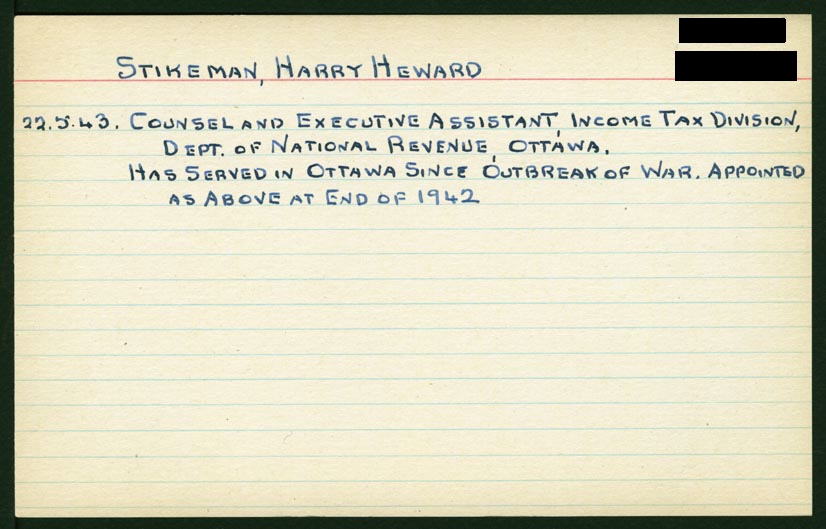 STIKEMAN, HARRY HEWARD
22.5.43. COUNSEL AND EXECUTIVE ASSISTANT, INCOME TAX DIVISION,
DEPT. OF NATIONAL REVENUE, OTTAWA.
HAS SERVED IN OTTAWA SINCE OUTBREAK OF WAR. APPOINTED
AS ABOVE AT END OF 1942